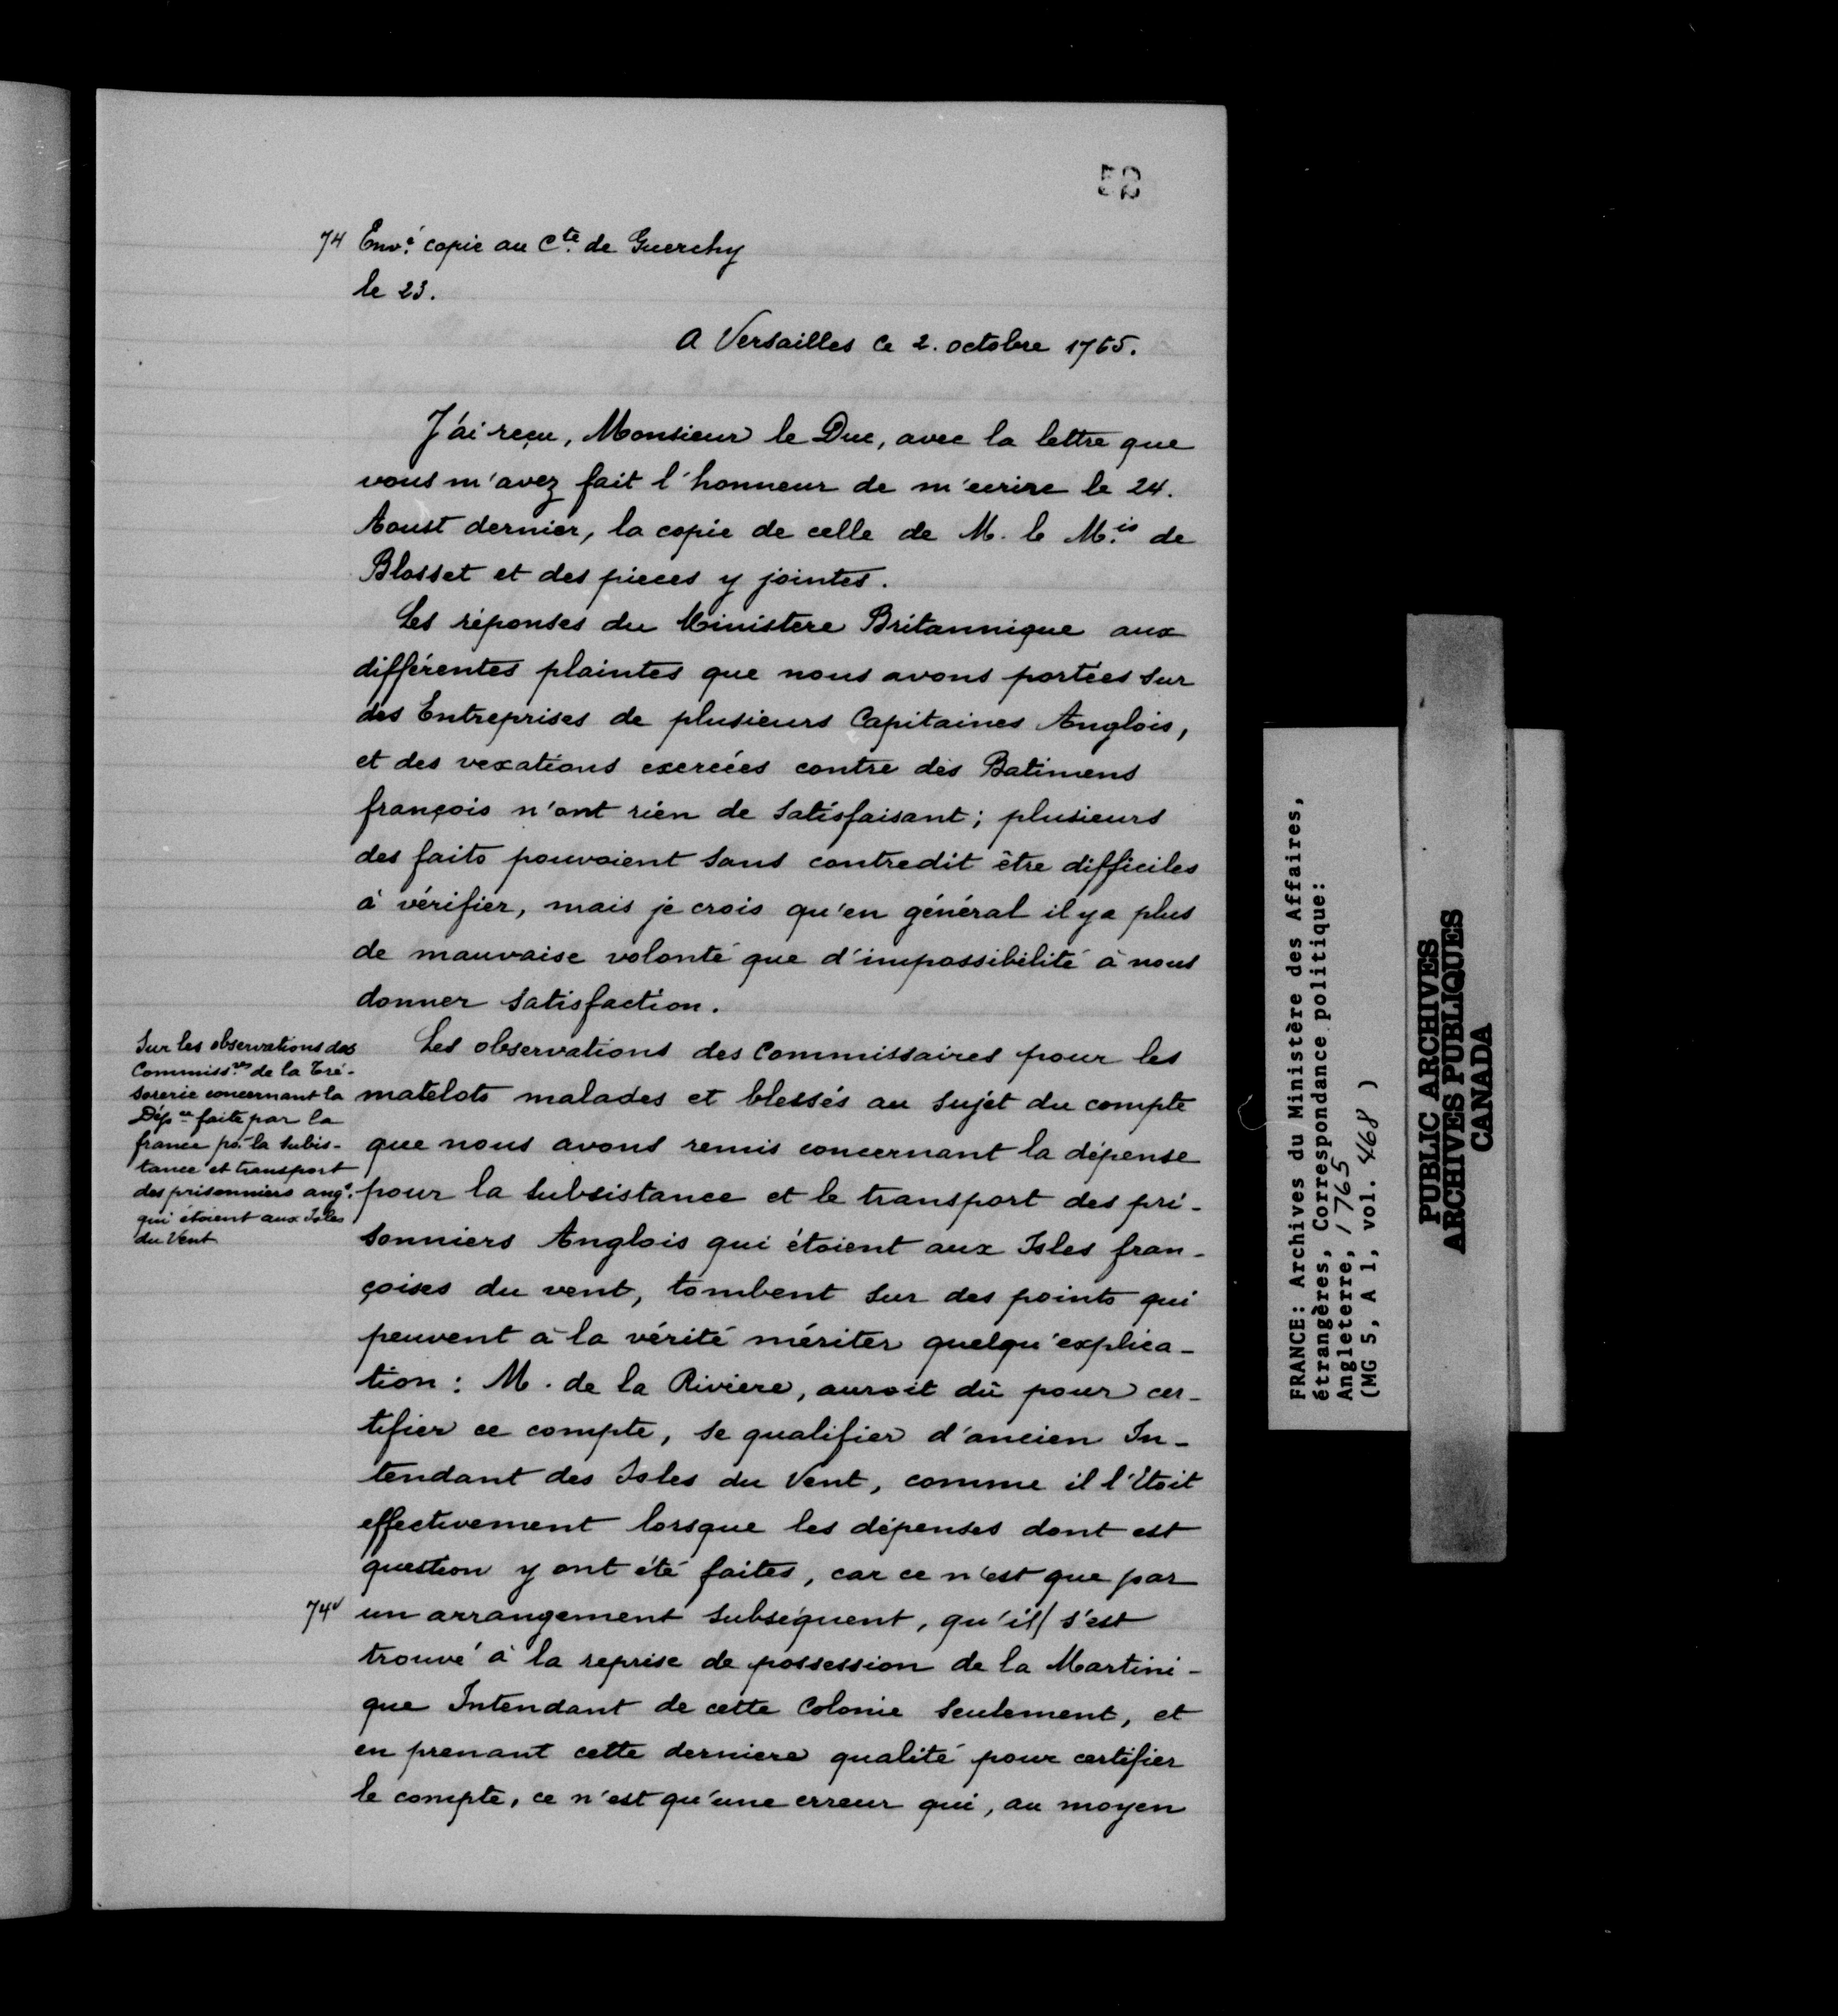 74 Env.é copie au C.te de Guerchy
le 23.
A Versailles Ce 2. octobre 1765.
J'ai reçu, Monsieur le Duc, avec la lettre que
vous m'avez fait l'honneur de m'ecrire le 24.
Aoust dernier, la copie de celle de M. le M.is de
Blosset et des pieces y jointes.
Les réponses du Ministere Britannique aux
différentes plaintes que nous avons portées sur
des Entreprises de plusieurs Capitaines Anglois,
et des vexations exercées contre des Batimens
françois n'ont rien de satisfaisant; plusieurs
des faits pouvoient sans contredit être difficiles
à vérifier, mais je crois qu'en général il y a plus
de mauvaise volonté que d'impossibilité à nous
donner satisfaction.
Sur les observations des
Commiss.res de la Tré-
sorerie concernant la
Dép.ce faite par la
france pr. la subis-
tance et transport
des prisonniers ang.s
qui étoient aux Isles
du Vent
Les observations des Commissaires pour les
matelots malades et blessés au sujet du compte
que nous avons remis concernant la dépense
pour la subsistance et le transport des pri-
sonniers Anglois qui étoient aux Isles fran-
çoises du vent, tombent sur des points qui
peuvent à la vérité mériter quelqu'explica-
tion : M. de la Riviere, auroit dû pour cer-
tifier ce compte, se qualifier d'ancien In-
tendant des Isles du Vent, comme il l'étoit
effectivement lorsque les dépenses dont est
question y ont été faites, car ce n'est que par
74v un arrangement subséquent, qu'il/ s'est
trouvé à la reprise de possession de la Martini-
que Intendant de cette Colonie seulement, et
en prenant cette derniere qualité pour certifier
le compte, ce n'est qu'une erreur qui, au moyen
FRANCE: Archives du Ministère des Affaires,
étrangères, Correspondance politique:
Angleterre, 1765
(MG 5, A 1, vol. 468 )
PUBLIC ARCHIVES
ARCHIVES PUBLIQUES
CANADA